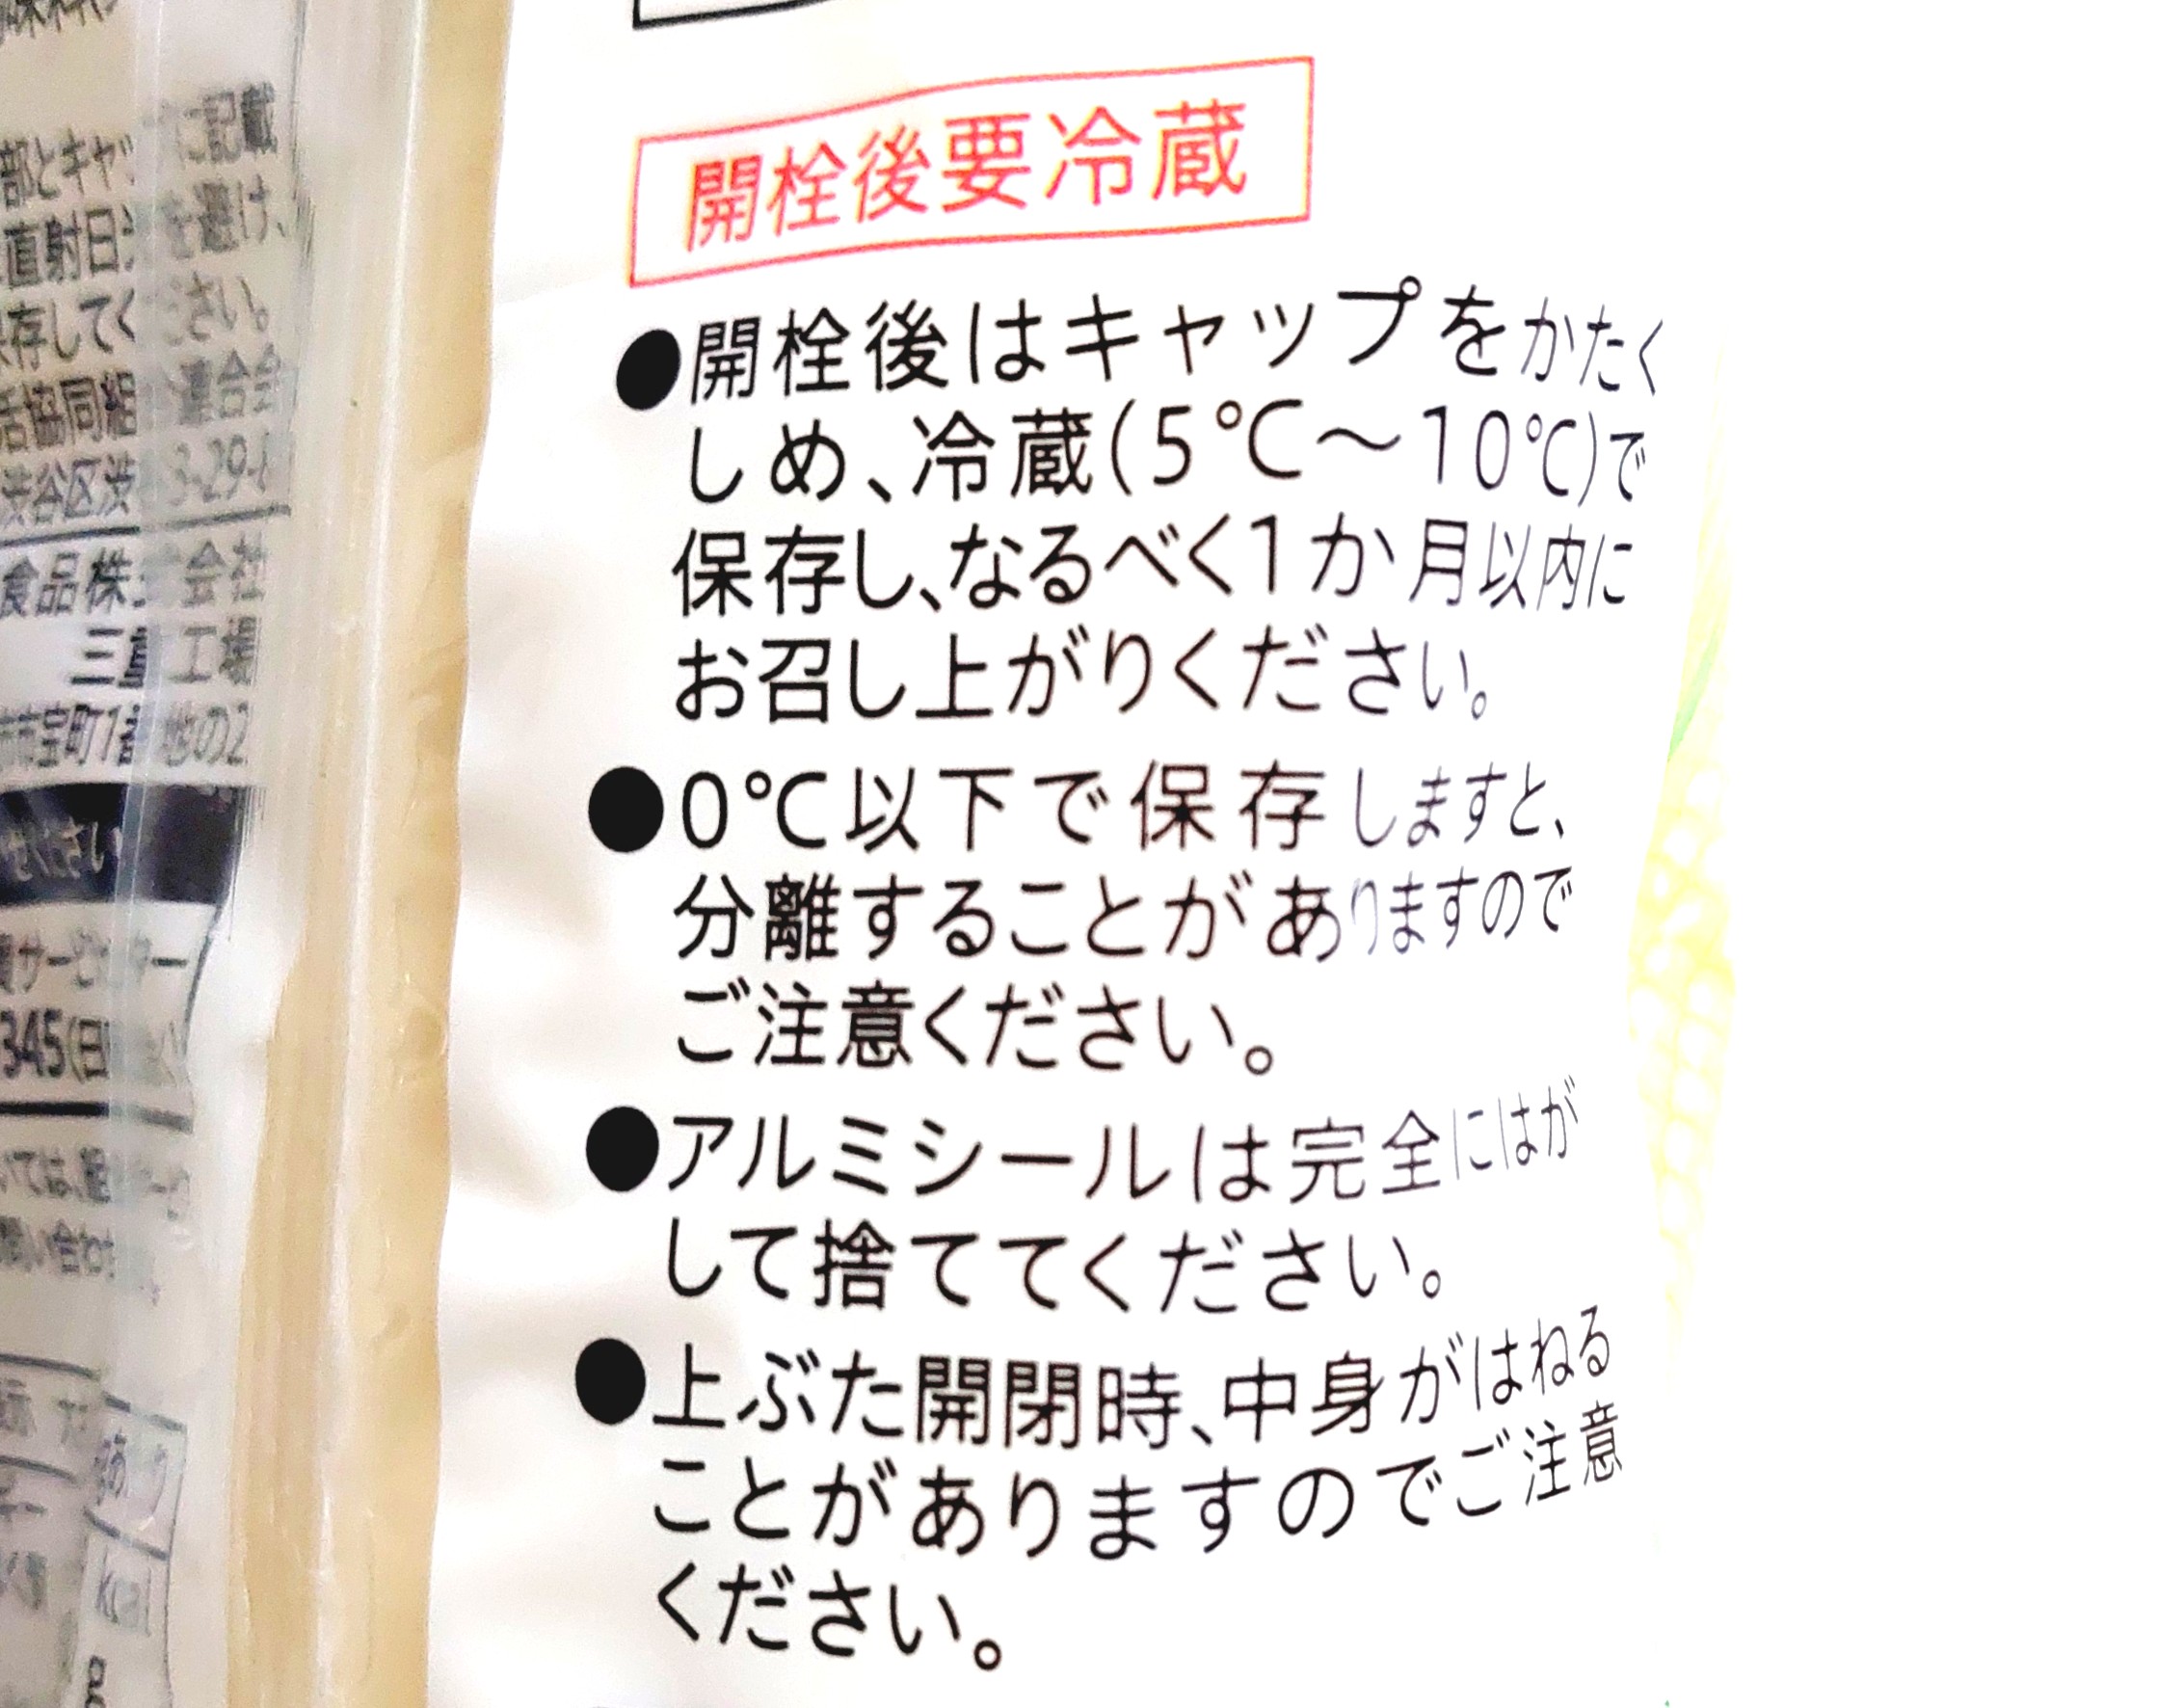 開栓後要冷蔵
●開栓後はキャップをかたく
しめ、冷蔵(5℃～10℃)で
保存し、なるべく1か月以内に
お召し上がりください。
●0℃以下で保存しますと、
分離することがありますので
ご注意ください。
●アルミシールは完全にはが
して捨ててください。
●上ぶた開閉時、中身がはねる
ことがありますのでご注意
ください。
部とキャッ に記載
直射日光を避け、
保存してください。
活協同組 連合会
渋谷区渋 3-29-8
食品株式会社
三島工場
市宝町1番地の2
ください
345(日
kcal
g